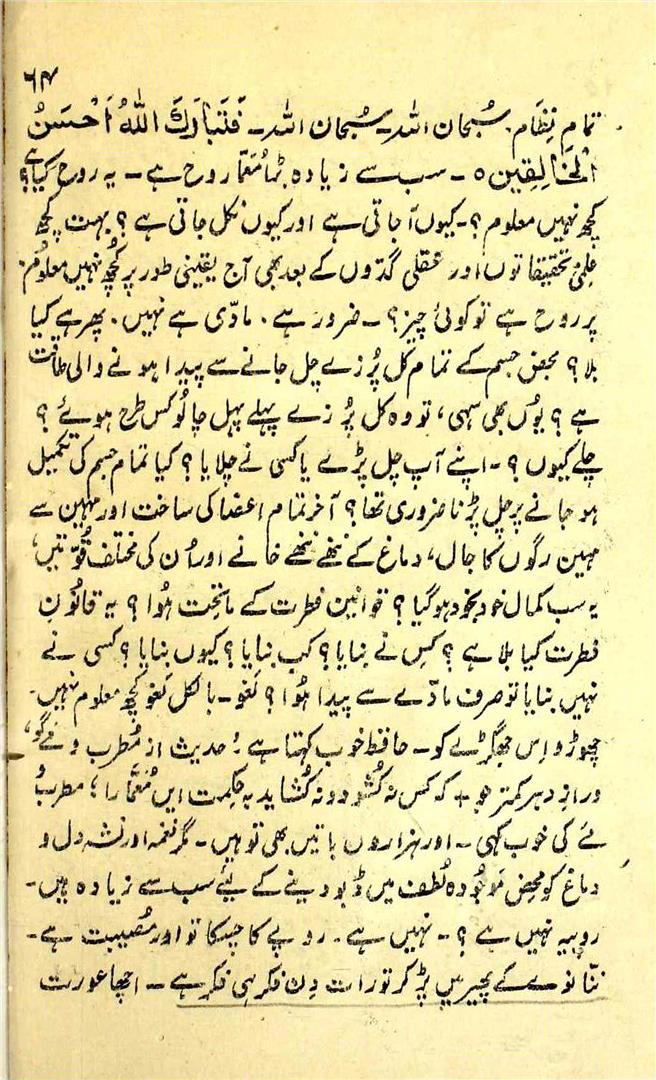 ۶۴
تمام نِظَام۔ سُبحَان اللہ۔ سُبحَان اللہ۔ فَتَبَارَكَ اللّٰهُ اَحْسَنُ
الْخَالِقِین ۵۔ سب سے زیادہ بڑا مُعَمّا روح ہے۔ یہ روح کیا ہے؟
کچھ نہیں معلوم؟۔ کیوں آ جاتی ہے اور کیوں نکل جاتی ہے؟ بہت کچھ
عِلمی تحقیقاتوں اور عقلی گدّوں کے بعد بھی آج یقینی طور پر کُچھ نہیں معلوُم۔
پر روح ہے تو کوئی چیز؟۔ ضرور ہے۔ مادّی ہے نہیں۔ پھر ہے کیا
بلا؟ محض جسم کے تمام کل پُرزے چل جانے سے پیدا ہونے والی طاقت
ہے؟ یوُں بھی سہی، تو وہ کل پُرزے پہلے پہل چالُو کس طرح ہوئے؟
چلے کیوں؟۔ اپنے آپ چل پڑے یا کسی نے چلایا؟ کیا تمام جسم کی تکمیل
ہو جانے پر چل پڑنا ضروری تھا؟ آخر تمام اعضا کی ساخت اور مہین سے
مہین رگوں کا جال، دماغ کے ننھے ننھے خانے اور اُن کی مختلف قُوّتیں،
یہ سب کمال خود بخود ہو گیا؟ قوانین فطرت کے ماتحت ہُوا؟ یہ قانُونِ
فطرت کیا بلا ہے؟ کِس نے بنایا؟ کب بنایا؟ کیوں بنایا؟ کسی نے
نہیں بنایا تو صرف مادّے سے پیدا ہُوا؟ لَغو۔ بالکل لَغو کچھ معلوم نہیں۔
چھوڑو اِس جھگڑے کو۔ حافظ خوب کہتا ہے: حدیث از مُطرب و مے گو،
و رازِ دہر کمتر جو + کہ کس نہ کشُود و نہ کُشاید بہ حِکمت ایں مُعَمّا را؛ مطربُ و
مَے کی خوب کہی۔ اور ہزاروں باتیں بھی تو ہیں۔ مگر نغمہ اور نشہ دل و
دماغ کو محض مَوجُودہ لُطف میں ڈبو دینے کے لیے سب سے زیادہ ہیں۔
روپیہ نہیں ہے؟۔ نہیں ہے۔ روپے کا چسکا تو اور مُصیبت ہے۔
ننّانوے کے پھیر میں پڑ کر تو رات دِن فکر ہی فکر ہے۔ اچھا عورت